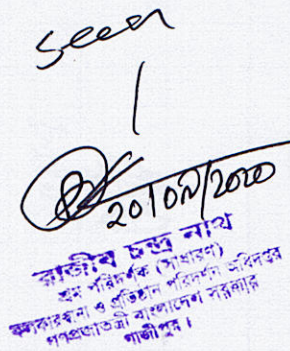 seen
20/09/2020
রাজীব চন্দ্র নাথ
শ্রম পরিদর্শক (সাধারণ)
কলকারখানা ও প্রতিষ্ঠান পরিদর্শন অধিদপ্তর
গণপ্রজাতন্ত্রী বাংলাদেশ সরকার
গাজীপুর।